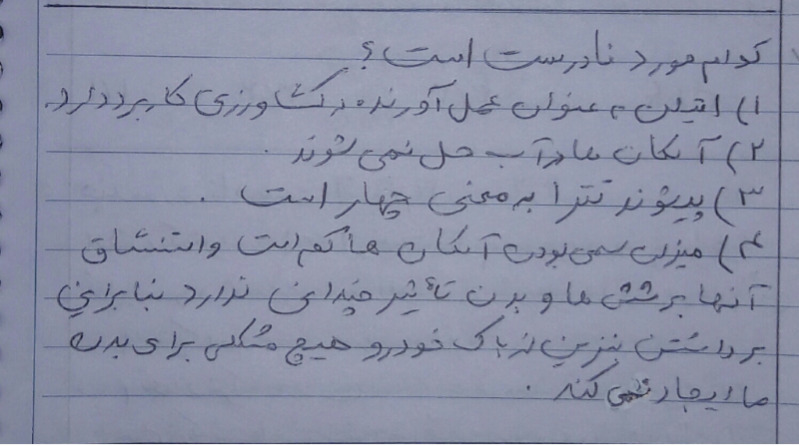 کدام مورد نادرست است؟
۱) اتیلن به عنوان عمل آورنده در کشاورزی کاربرد دارد.
۲) آلکان ها در آب حل نمی شوند.
۳) پیشوند تترا به معنی چهار است.
۴) میزان سمی بودن آلکان ها کم است و استنشاق
آنها بر شش ها و بدن تأثیر چندانی ندارد بنابراین
برداشتن بنزین از باک خودرو هیچ مشکلی برای بدن
ما ایجاد نمی کند.